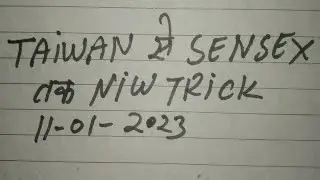 TAIWAN से SENSEX
तक NIW TRICK
11-01-2023